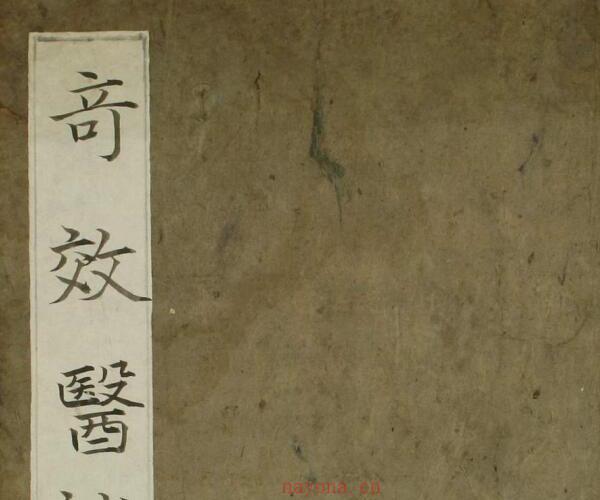 竒效醫
nayona.cn